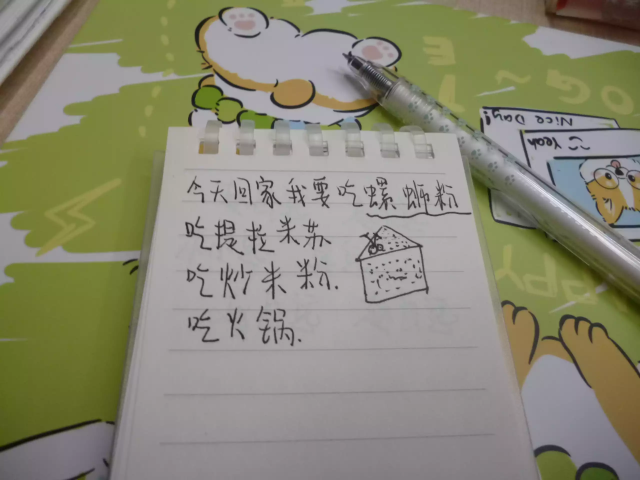 今天回家我要吃螺蛳粉
吃提拉米苏
吃炒米粉.
吃火锅.
Nice Day!
Yeah